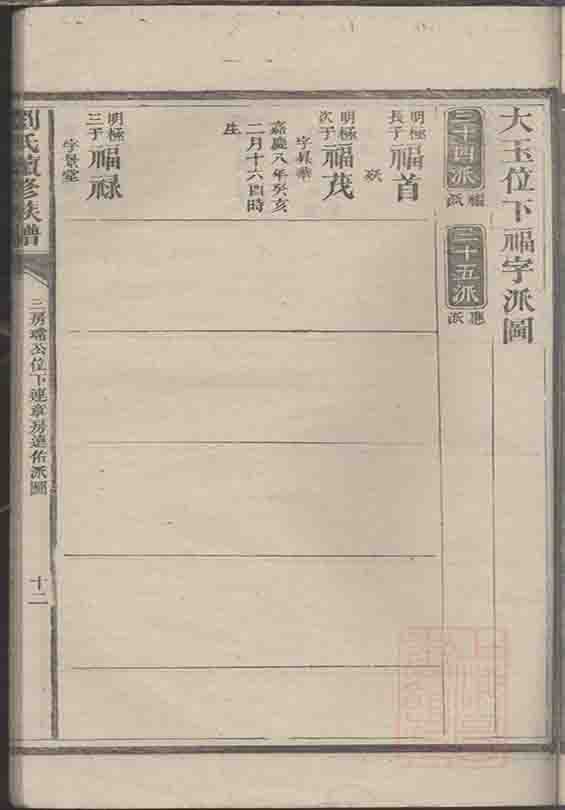 大玉位下福字派圖
三十四派
福派
三十五派
應派
明極長子
福首
歿
明極次子
福茂
字昇華
嘉慶八年癸亥
二月十六酉時
生
明極三子
福祿
字景堂
劉氏續修族譜
三房瑞公位下連章房達佑派圖
十二